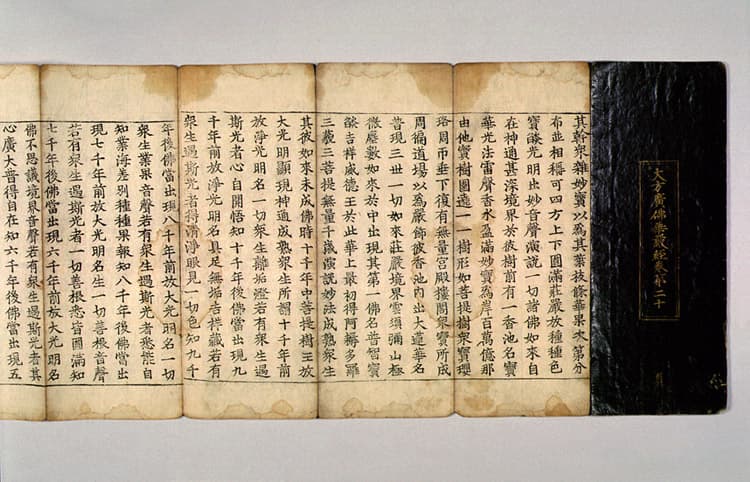 大方廣佛華嚴經卷第二十
其幹衆雜妙寶以為其葉枝條華果次第分
布並相稱可四方上下圓滿莊嚴放種種色
寶燄光明出妙音聲演說一切諸佛如來自
在神通甚深境界於彼樹前有一香池名寶
華光法雷聲香水盈滿妙寶為岸百萬億那
由他寶樹圍遶一一樹形如菩提樹衆寶瓔
珞周帀垂下復有無量宮殿樓閣衆寶所成
周徧道場以為嚴飾彼香池內出大蓮華名
普現三世一切如來莊嚴境界雲須彌山極
微塵數如來於中出現其第一佛名普智寶
燄吉祥威德王於此華上最初得阿耨多羅
三藐三菩提無量千歲演說妙法成熟衆生
其彼如來未成佛時十千年中菩提樹王放
大光明顯現神通成熟衆生所謂十千年前
放淨光明名一切衆生離垢燈若有衆生遇
斯光者心自開悟知十千年後佛當出現九
千年前放淨光明名具足無垢吉祥藏若有
衆生遇斯光者得清淨眼見一切色知九千
年後佛當出現八千年前放大光明名一切
衆生業果音聲若有衆生遇斯光者悉能自
知業海差別種種果報知八千年後佛當出
現七千年前放大光明名生一切善根音聲
若有衆生遇斯光者一切善根悉皆圓滿知
七千年後佛當出現六千年前放大光明名
佛不思議境界音聲若有衆生遇斯光者其
心廣大普得自在知六千年後佛當出現五